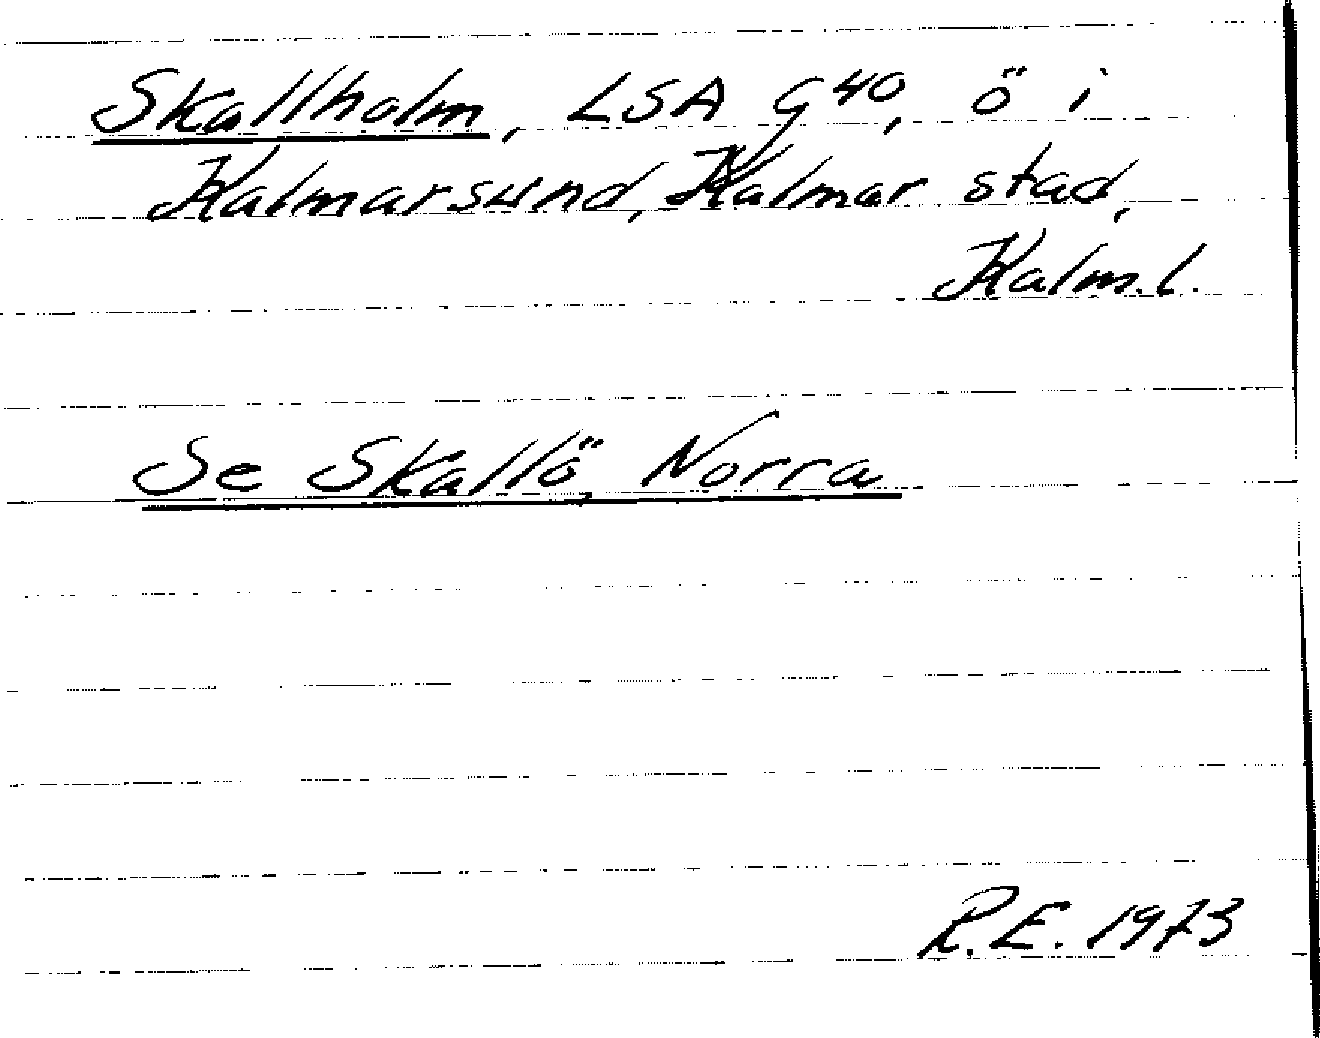 Skallholm, LSA G 40, ö i
Kalmarsund, Kalmar stad,
Kalm.l.
Se Skallö, Norra
R.E. 1973